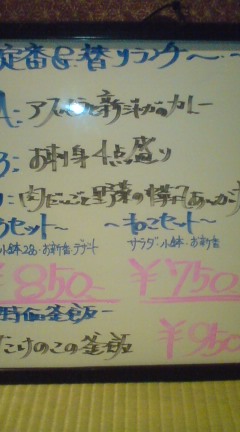 定番&日替りランチ〜
A: アスパラと新じゃがのカレー
B: お刺身4点盛り
肉だんごと野菜の
セット〜 〜ねこセット〜
小鉢2品・お新香・デザート サラダ・小鉢・お新香
¥850- ¥750
特価釜飯-
たけのこの釜飯 ¥950